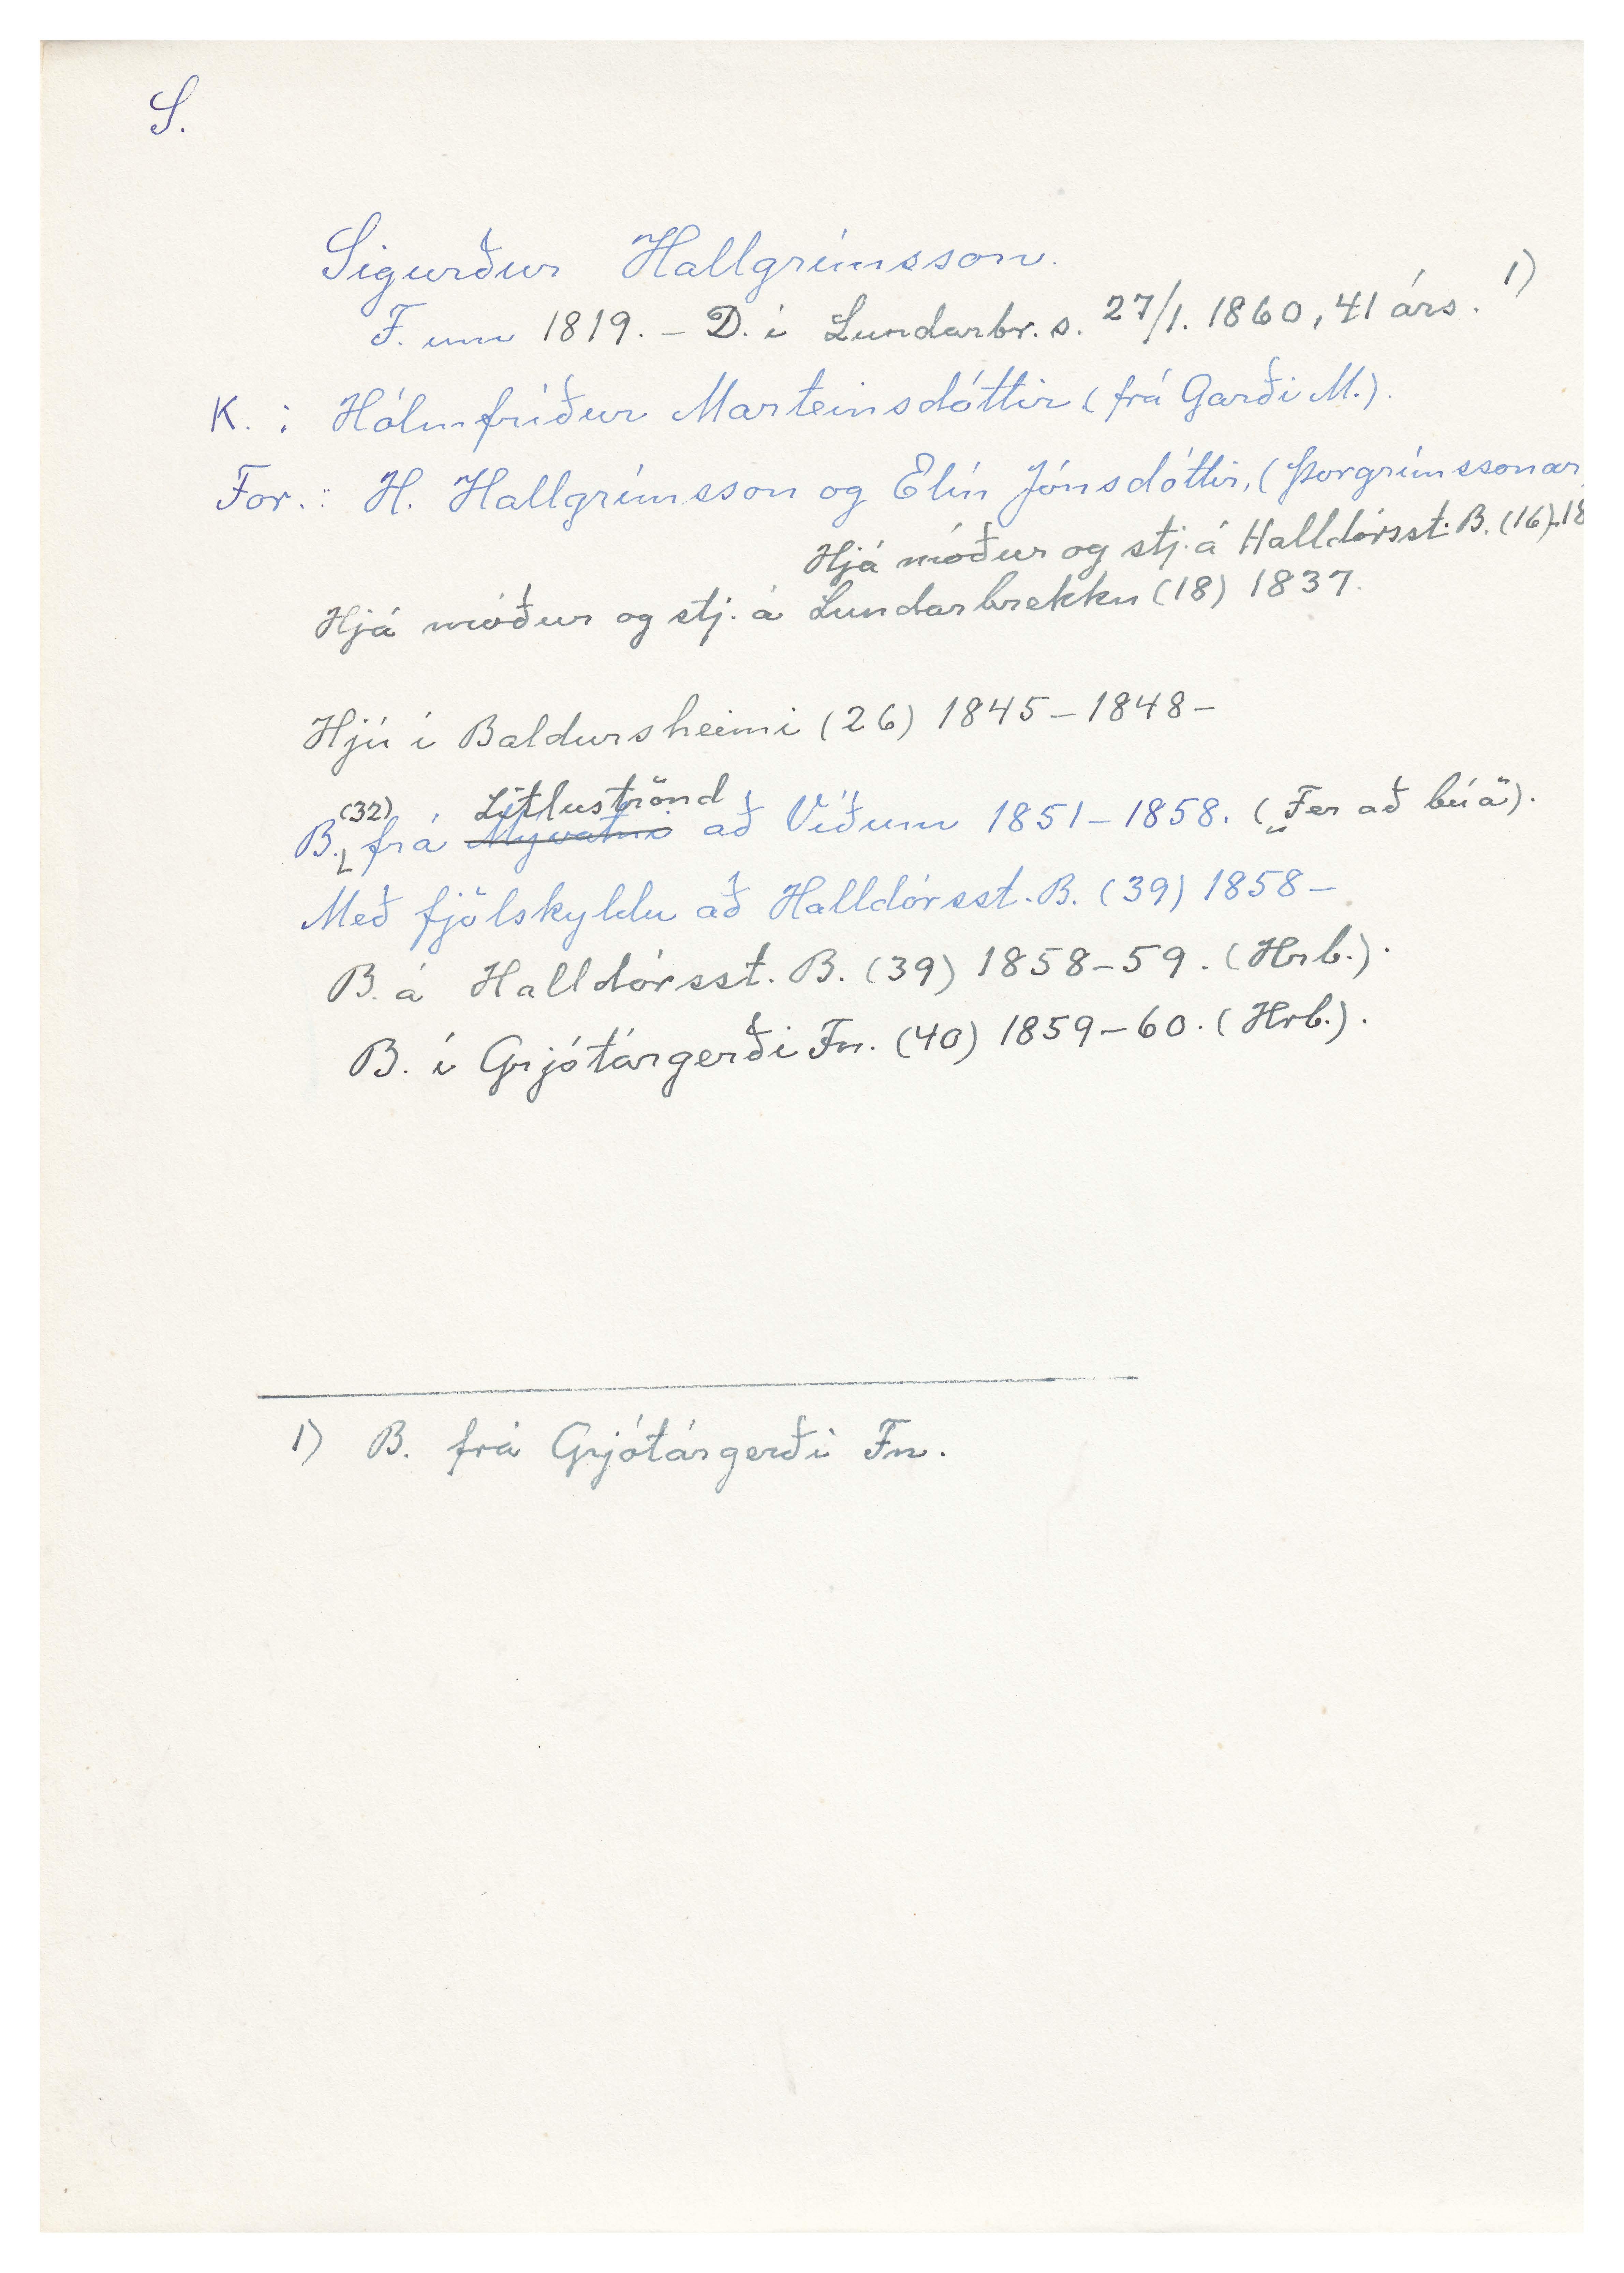 S.
Sigurður Hallgrímsson.
F. um 1819. – D. í Lundarbr. s. 27/1. 1860, 41 árs. 1)
K. : Hólmfríður Marteinsdóttir (frá Garði M.).
For.: H. Hallgrímsson og Elín Jónsdóttir, (Þorgrímssonar
Hjá móður og stj. á Halldórsst. B. (16) 18
Hjá móður og stj. á Lundarbrekku (18) 1837.
Hjú í Baldursheimi (26) 1845 – 1848 –
(32) Litluströnd
B. frá Mývatni að Víðum 1851 – 1858. („Fer að búa").
Með fjölskyldu að Halldórsst. B. (39) 1858 –
B. á Halldórsst. B. (39) 1858 – 59. (Hrb.).
B. í Grjótárgerði Fn. (40) 1859 – 60. (Hrb.).
1) B. frá Grjótárgerði Fn.